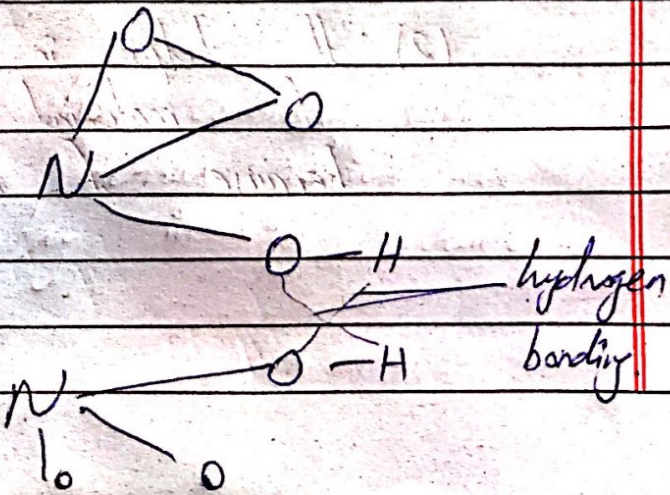 O
O
N
O - H
hydrogen
bonding
O - H
N
O O